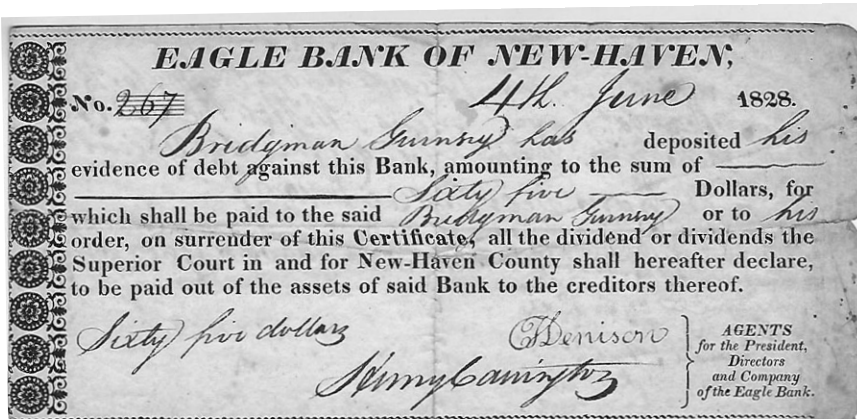 EAGLE BANK OF NEW-HAVEN,
No. 267 4th. June 1828.
Bridgman Gurnsey has deposited his
evidence of debt against this Bank, amounting to the sum of
Sixty five Dollars, for
which shall be paid to the said Bridgman Gurnsey or to his
order, on surrender of this Certificate, all the dividend or dividends the
Superior Court in and for New-Haven County shall hereafter declare,
to be paid out of the assets of said Bank to the creditors thereof.
Sixty five dollars
C Denison
Henry Carrington
AGENTS
for the President,
Directors
and Company
of the Eagle Bank.